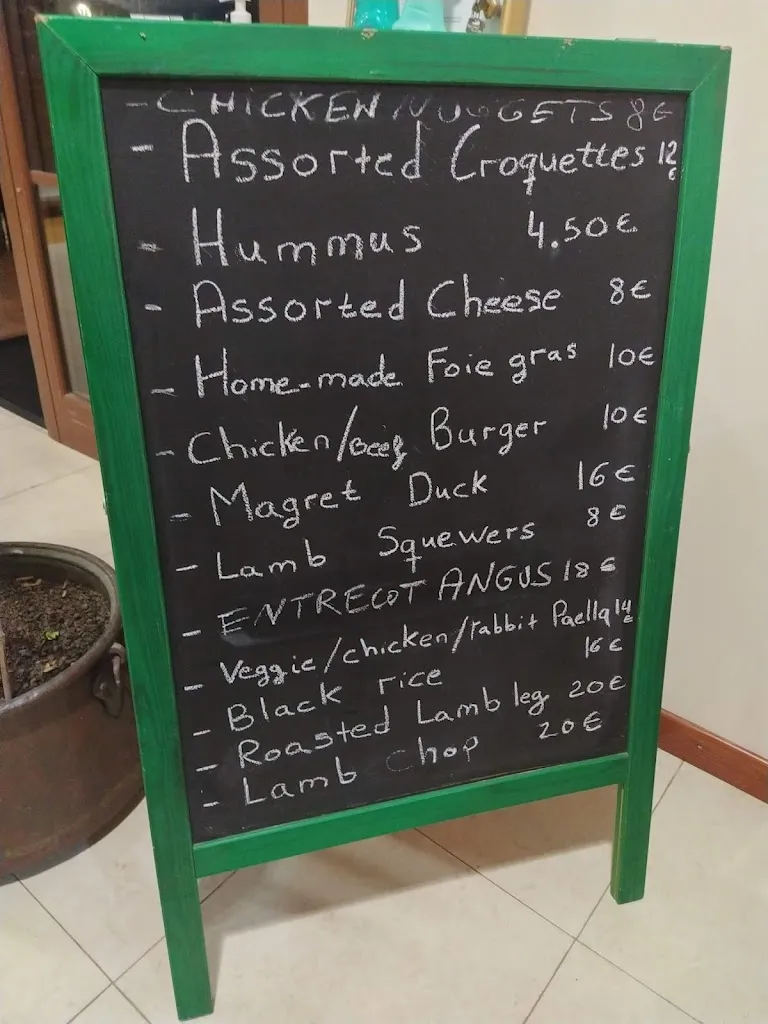 - CHICKEN NUGGETS 8€
- Assorted Croquettes 12€
- Hummus 4.50€
- Assorted Cheese 8€
- Home-made Foie gras 10€
- Chicken/beef Burger 10€
- Magret Duck 16€
- Lamb Squewers 8€
- ENTRECOT ANGUS 18€
- Veggie/chicken/rabbit Paella 14€
- Black rice 16€
- Roasted Lamb leg 20€
- Lamb Chop 20€